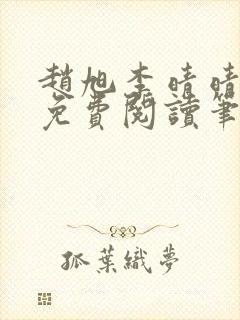 趙旭李晴晴
免費閱讀筆
孤葉織夢